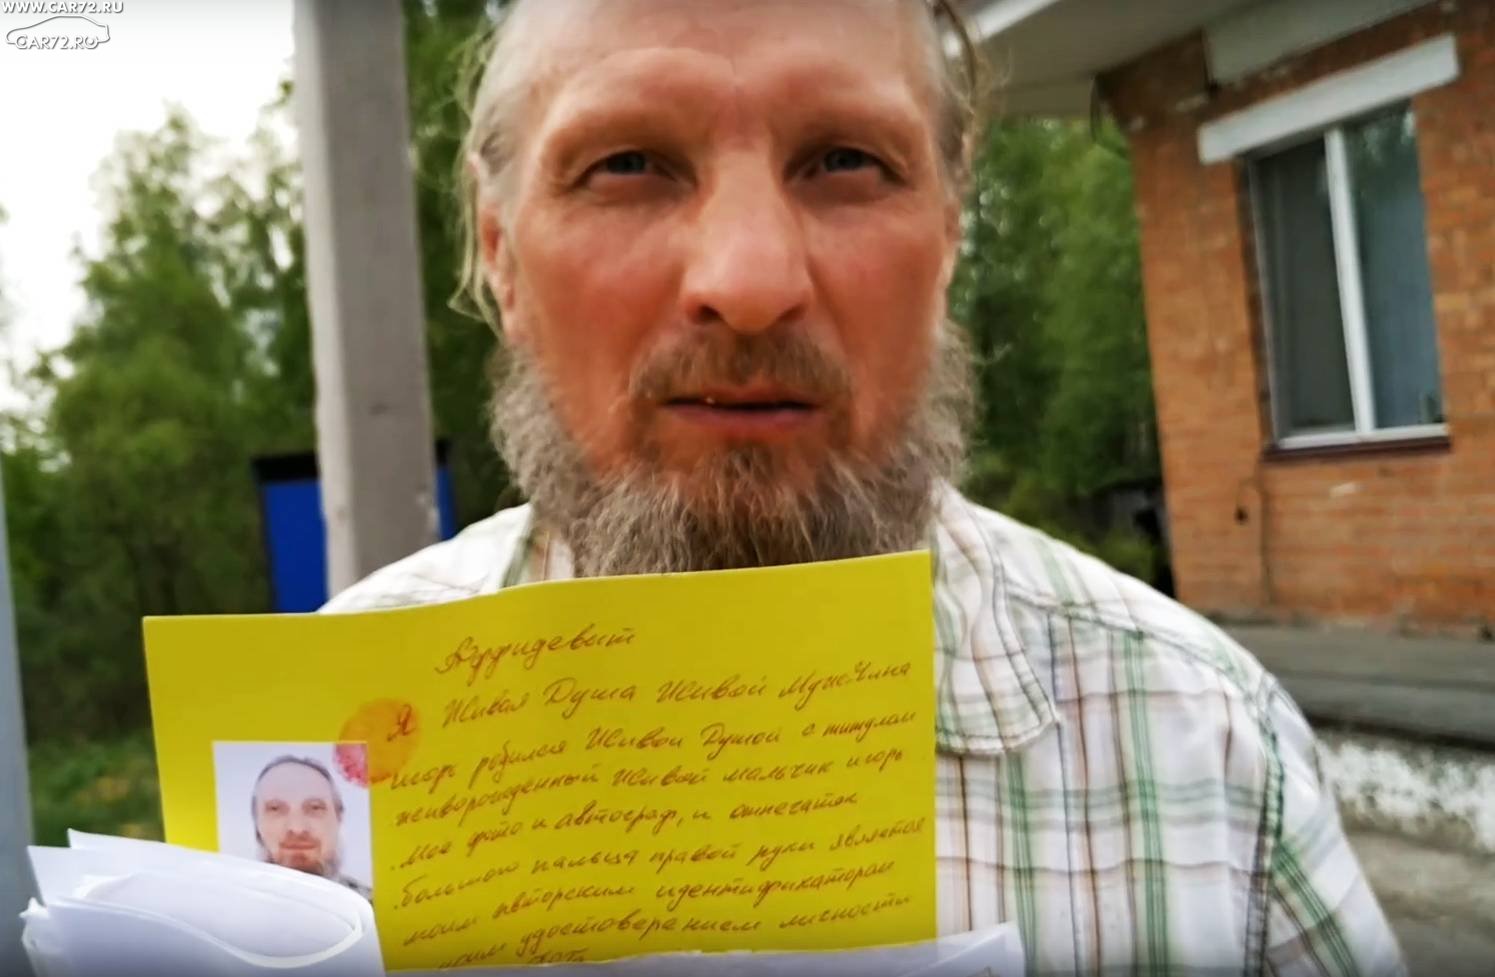 WWW.CAR72.RU
CAR72.RU
Аффидевит
Я Живая Душа Живой МужЧина
Игорь родился Живой Душой с титулом
живорожденный Живой мальчик игорь
. Мое фото и автограф, и отпечаток
. большого пальца правой руки является
моим авторским идентификатором
моим удостоверением личности